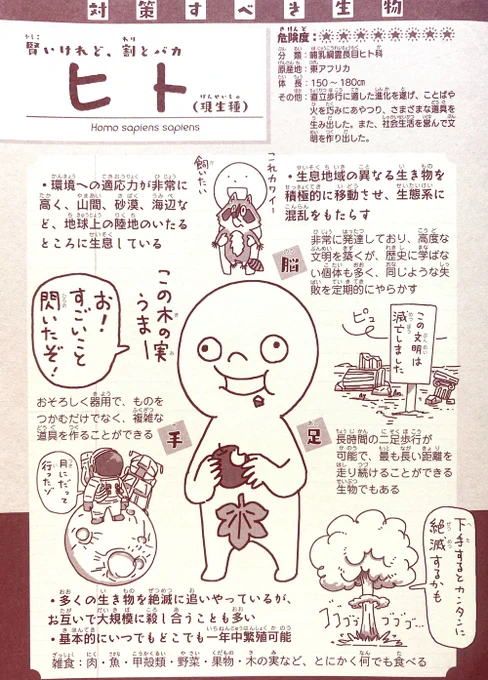 対策すべき生物
賢いけれど、割とバカ
ヒト(現生種)
Homo sapiens sapiens
危険度:☆☆☆☆☆☆☆☆☆
分 類:哺乳綱霊長目ヒト科
原産地:東アフリカ
体 長:150~180cm
その他:直立歩行に適した進化を遂げ、ことばや
火を巧みにあやつり、さまざまな道具を
生み出した。また、社会生活を営んで文
明を作り出した。
・環境への適応力が非常に
高く、山間、砂漠、海辺な
ど、地球上の陸地のいたる
ところに生息している
これカワイー
飼いたい
・生息地域の異なる生き物を
積極的に移動させ、生態系に
混乱をもたらす
脳
非常に発達しており、高度な
文明を築くが、歴史に学ばな
い個体も多く、同じような失
敗を定期的にやらかす
お!
すごいこと
閃いたぞ!
この木の実
うまー
ピュ~
この文明は
滅亡しました
おそろしく器用で、ものを
つかむだけでなく、複雑な
道具を作ることができる
手
足
長時間の二足歩行が
可能で、最も長い距離を
走り続けることができる
生物でもある
月にだって
行ったゾ
下手するとカンタンに
絶滅するかも
ゴゴゴゴ
ゴゴゴ…
・多くの生き物を絶滅に追いやっているが、
お互いで大規模に殺し合うことも多い
・基本的にいつでもどこでも一年中繁殖可能
雑食:肉・魚・甲殻類・野菜・果物・木の実など、とにかく何でも食べる